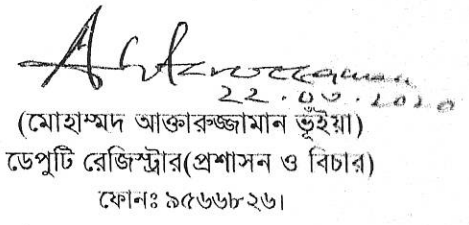 22.03.2020
(মোহাম্মদ আক্তারুজ্জামান ভূঁইয়া)
ডেপুটি রেজিস্ট্রার(প্রশাসন ও বিচার)
ফোনঃ ৯৫৬৬৮২৬।